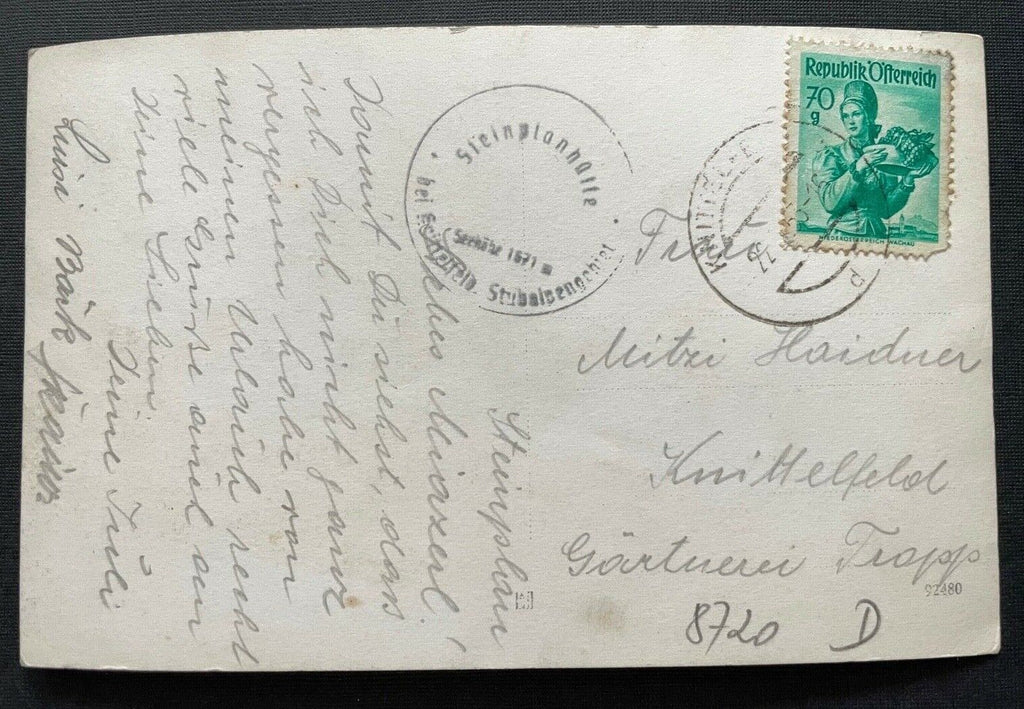 Steinplan
Liebes Miazerl!
Damit Du siehst, dass
ich Dich nicht ganz
vergessen habe von
meinem Urlaub recht
viele Grüße auch an
Deine Lieben.
Deine Juli
Luisi
Steinplanhütte
bei Knittelfeld Stubalpengebiet
Seehöhe 1671 m
Republik Österreich
70
g
NIEDERÖSTERREICH, WACHAU
KNITTELFELD
Frau
Mitzi Haidner
Knittelfeld
Gärtnerei Tropp
92480
8720 D